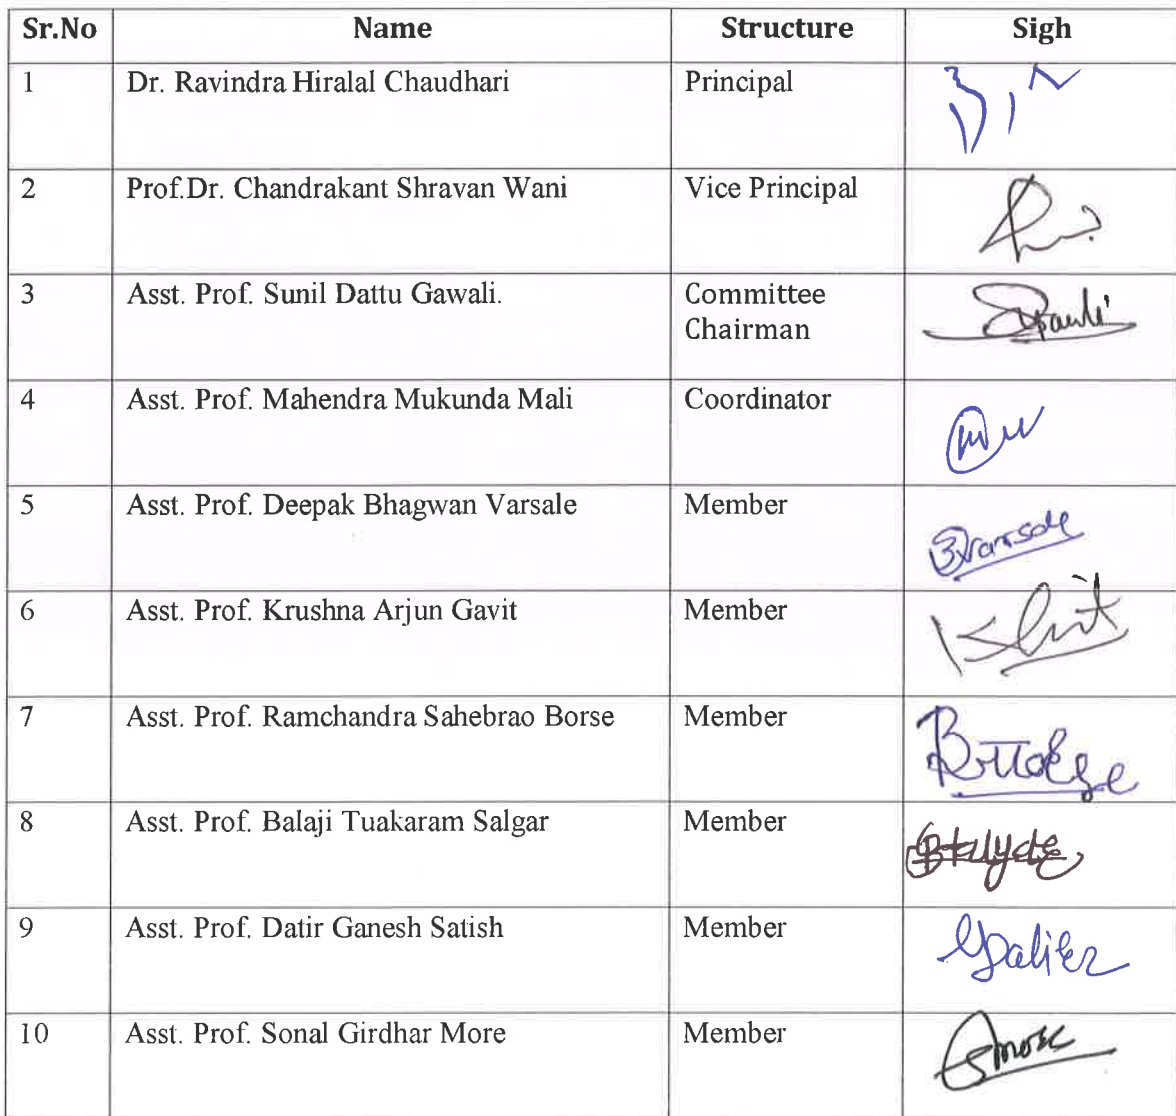 Sr.No Name Structure Sigh
1 Dr. Ravindra Hiralal Chaudhari Principal
2 Prof.Dr. Chandrakant Shravan Wani Vice Principal
3 Asst. Prof. Sunil Dattu Gawali. Committee
Chairman
4 Asst. Prof. Mahendra Mukunda Mali Coordinator
5 Asst. Prof. Deepak Bhagwan Varsale Member
6 Asst. Prof. Krushna Arjun Gavit Member
7 Asst. Prof. Ramchandra Sahebrao Borse Member
8 Asst. Prof. Balaji Tuakaram Salgar Member
9 Asst. Prof. Datir Ganesh Satish Member
10 Asst. Prof. Sonal Girdhar More Member